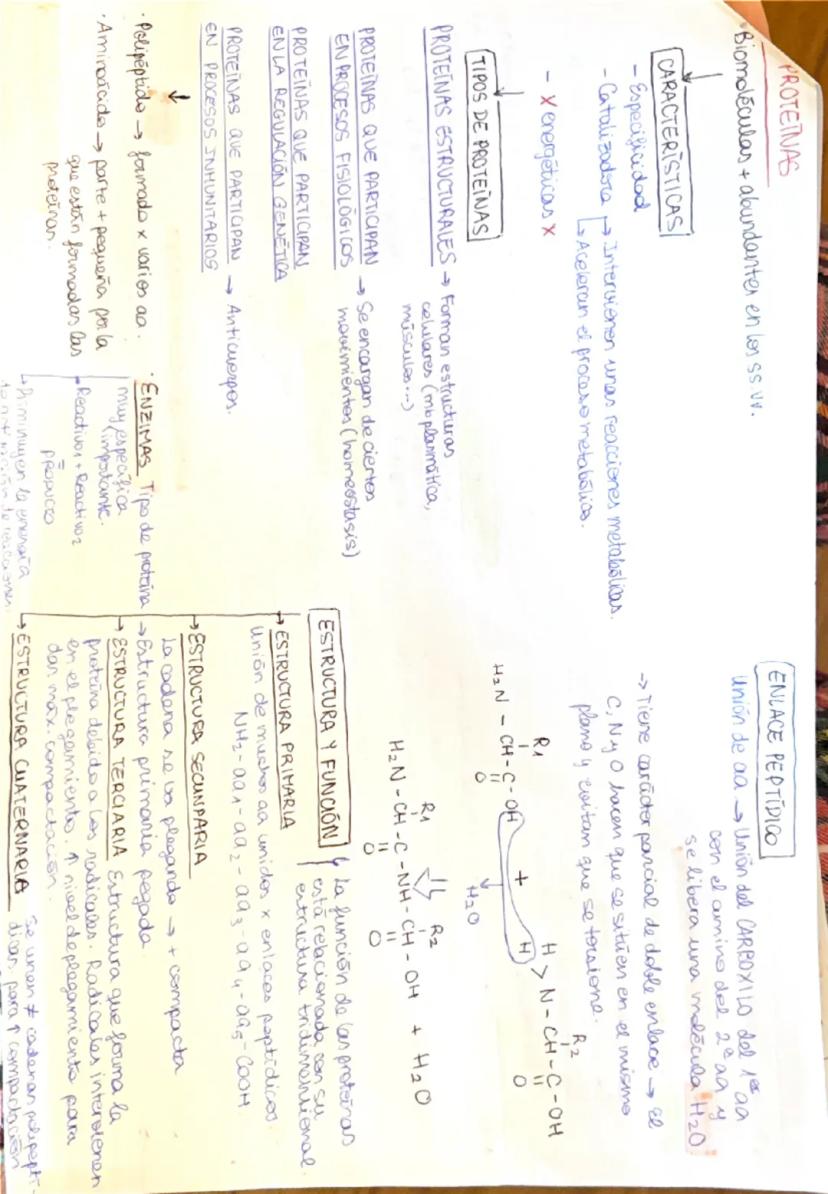 PROTEÍNAS
· Biomoléculas + abundantes en los SS.VV.
CARACTERÍSTICAS
- Especificidad
- Catalizadora → Intervienen unas reacciones metabólicas.
↳ Aceleran el proceso metabólico.
- X energéticas X
TIPOS DE PROTEÍNAS
PROTEÍNAS ESTRUCTURALES → Forman estructuras
celulares (mb plasmática,
músculos...)
PROTEÍNAS QUE PARTICIPAN → Se encargan de ciertos
EN PROCESOS FISIOLÓGICOS movimientos (homeostasis)
PROTEÍNAS QUE PARTICIPAN
EN LA REGULACIÓN GENÉTICA
PROTEÍNAS QUE PARTICIPAN → Anticuerpos.
EN PROCESOS INMUNITARIOS
· Polipéptido → formado x varios aa.
· Aminoácido → parte + pequeña por la
que están formadas las
proteínas.
· ENZIMAS Tipo de proteína
muy específica
(importante.
Reactivo1 + Reactivo2
=
PRODUCTO
↳ Disminuyen la energía
de reacciones.
ENLACE PEPTÍDICO
Unión de aa → Unión del CARBOXILO del 1er aa
con el amino del 2º aa y
se libera una molécula H2O
→ Tiene carácter parcial de doble enlace → El
C, N y O hacen que se sitúen en el mismo
plano y evitan que se torsione.
R1 R2
H2N - CH - C - OH + H H > N - CH - C - OH
O O
H2O
R1 R2
H2N - CH - C - NH - CH - OH + H2O
O O
ESTRUCTURA Y FUNCIÓN
↳ La función de las proteínas
está relacionada con su
estructura tridimensional.
→ ESTRUCTURA PRIMARIA
Unión de muchos aa unidos x enlaces peptídicos
NH2 - aa1 - aa2 - aa3 - aa4 - aa5 - COOH
→ ESTRUCTURA SECUNDARIA
La cadena se va plegando → + compacta
→ Estructura primaria pegada.
→ ESTRUCTURA TERCIARIA Estructura que forma la
proteína debido a los radicales. Radicales intervienen
en el plegamiento. ↑ nivel de plegamiento para
dar max. compactación.
→ ESTRUCTURA CUATERNARIA Se unen ≠ cadenas polipeptí-
dicas, para ↑ compactación